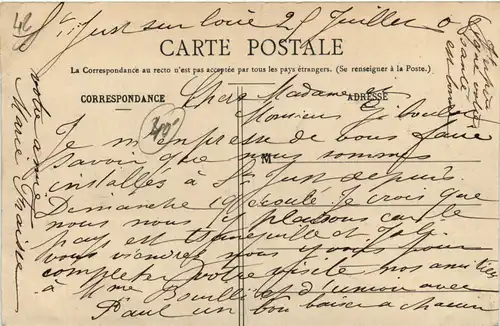 St Just sur Loire 25 Juillet 0
CARTE POSTALE
La Correspondance au recto n'est pas acceptée par tous les pays étrangers. (Se renseigner à la Poste.)
CORRESPONDANCE
ADRESSE
Chers Madame et
Monsieur
40-
Je m'empresse de vous faire
savoir que nous sommes
M
installés à St Just depuis
Dimanche 19 écoulé Je crois que
nous nous y plaisons car le
pays est tranquille et joli
vous viendrez nous y voir pour
completer votre visite nos amitiés
à Mme et d'union avec
Paul un bon baiser à chacun
votre amie
Marie
42